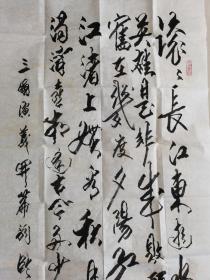 滚〻長江東逝水
英雄是非成敗
舊在幾度夕陽紅
江渚上慣看秋月
濁酒喜相逢古今多少
三國演義開篇詞